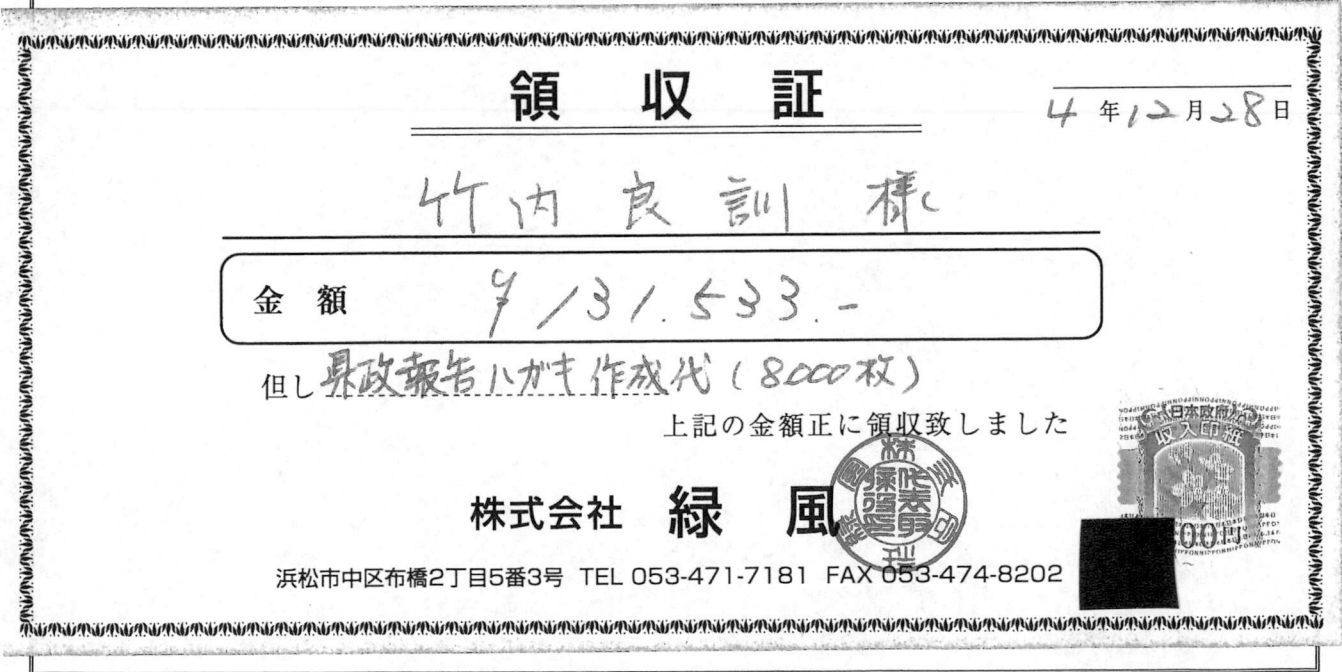 領収証
4年12月28日
竹内良訓様
金額 ¥131.533.-
但し 県政報告ハガキ作成代(8000枚)
上記の金額正に領収致しました
株式会社 緑風
浜松市中区布橋2丁目5番3号 TEL 053-471-7181 FAX 053-474-8202
日本政府
収入印紙
00円